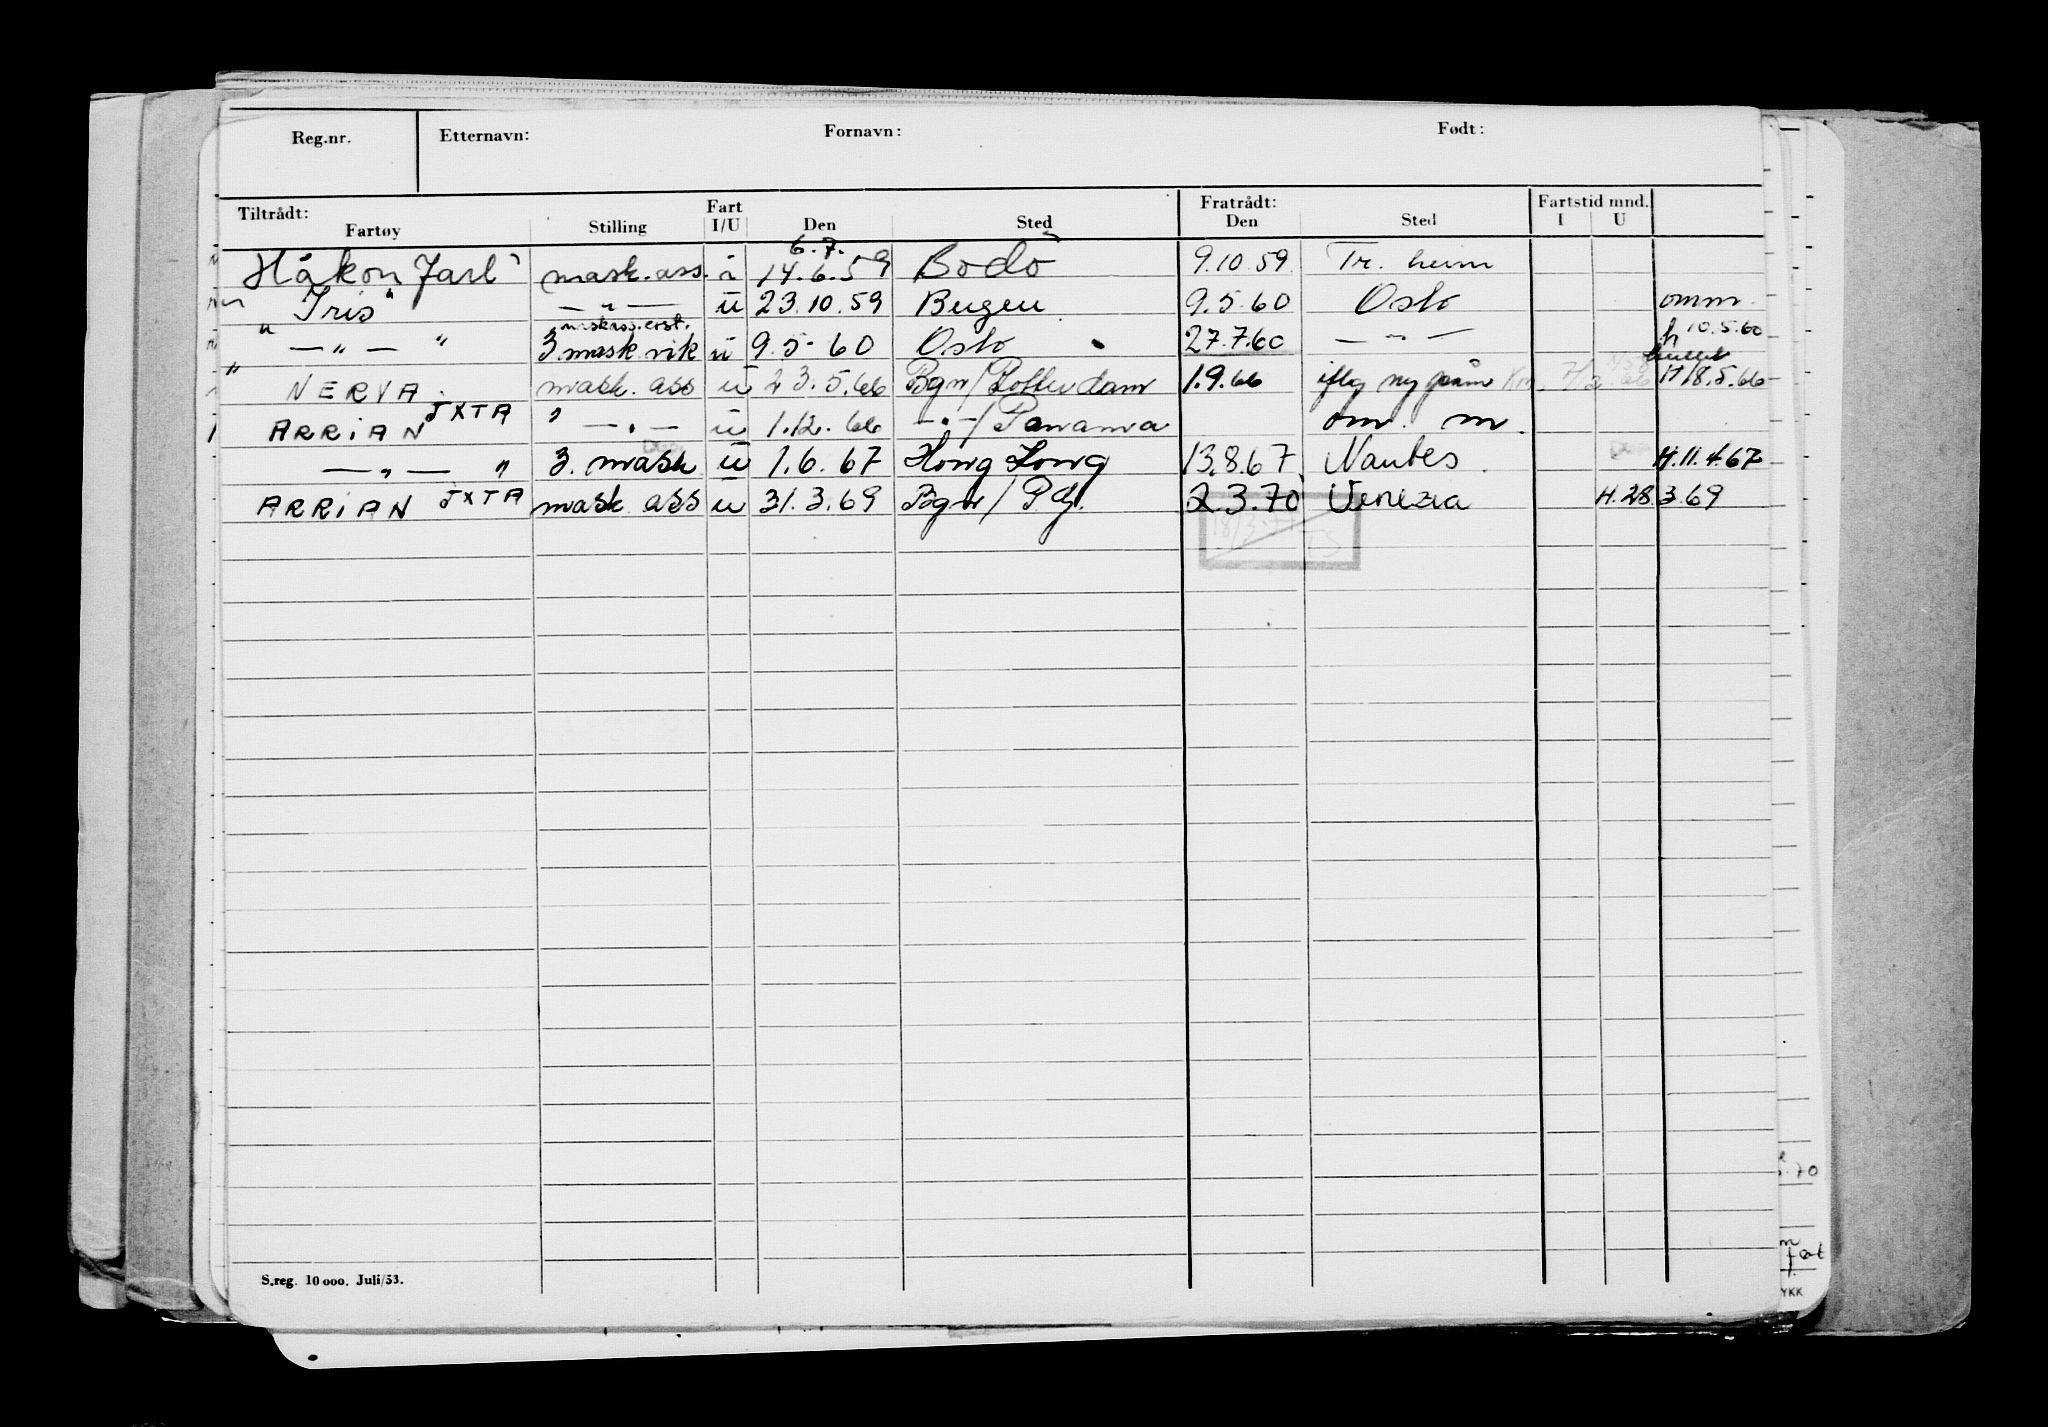 Reg.nr. Etternavn: Fornavn: Født:
Tiltrådt: Fratrådt: Fartstid mnd.
Fartøy Stilling Fart I/U Den Sted Den Sted I U
6.7.
Håkon Jarl" mask.ass. i 14.6.59 Bodö 9.10.59 Tr.heim
" Iris" — " — u 23.10.59 Bergen 9.5.60 Oslo omm
" — " — " 3 mask vik u 9.5.60 Oslo 27.7.60 — " — h 10.5.60
" NERVA mask. ass u 23.5.66 Bgn/Rotterdam 1.9.66 iflg ny påm H 18.5.66
ARRIAN JXTA " — " — u 1.12.66 — " —/Panama om. m.
— " — " 3. mask u 1.6.67 Hong Kong 13.8.67 Nantes H.11.4.67
ARRIAN JXTA mask ass u 31.3.69 Bgn/P.G. 2.3.70 Venezia H.28.3.69
S.reg. 10 000. Juli/53.